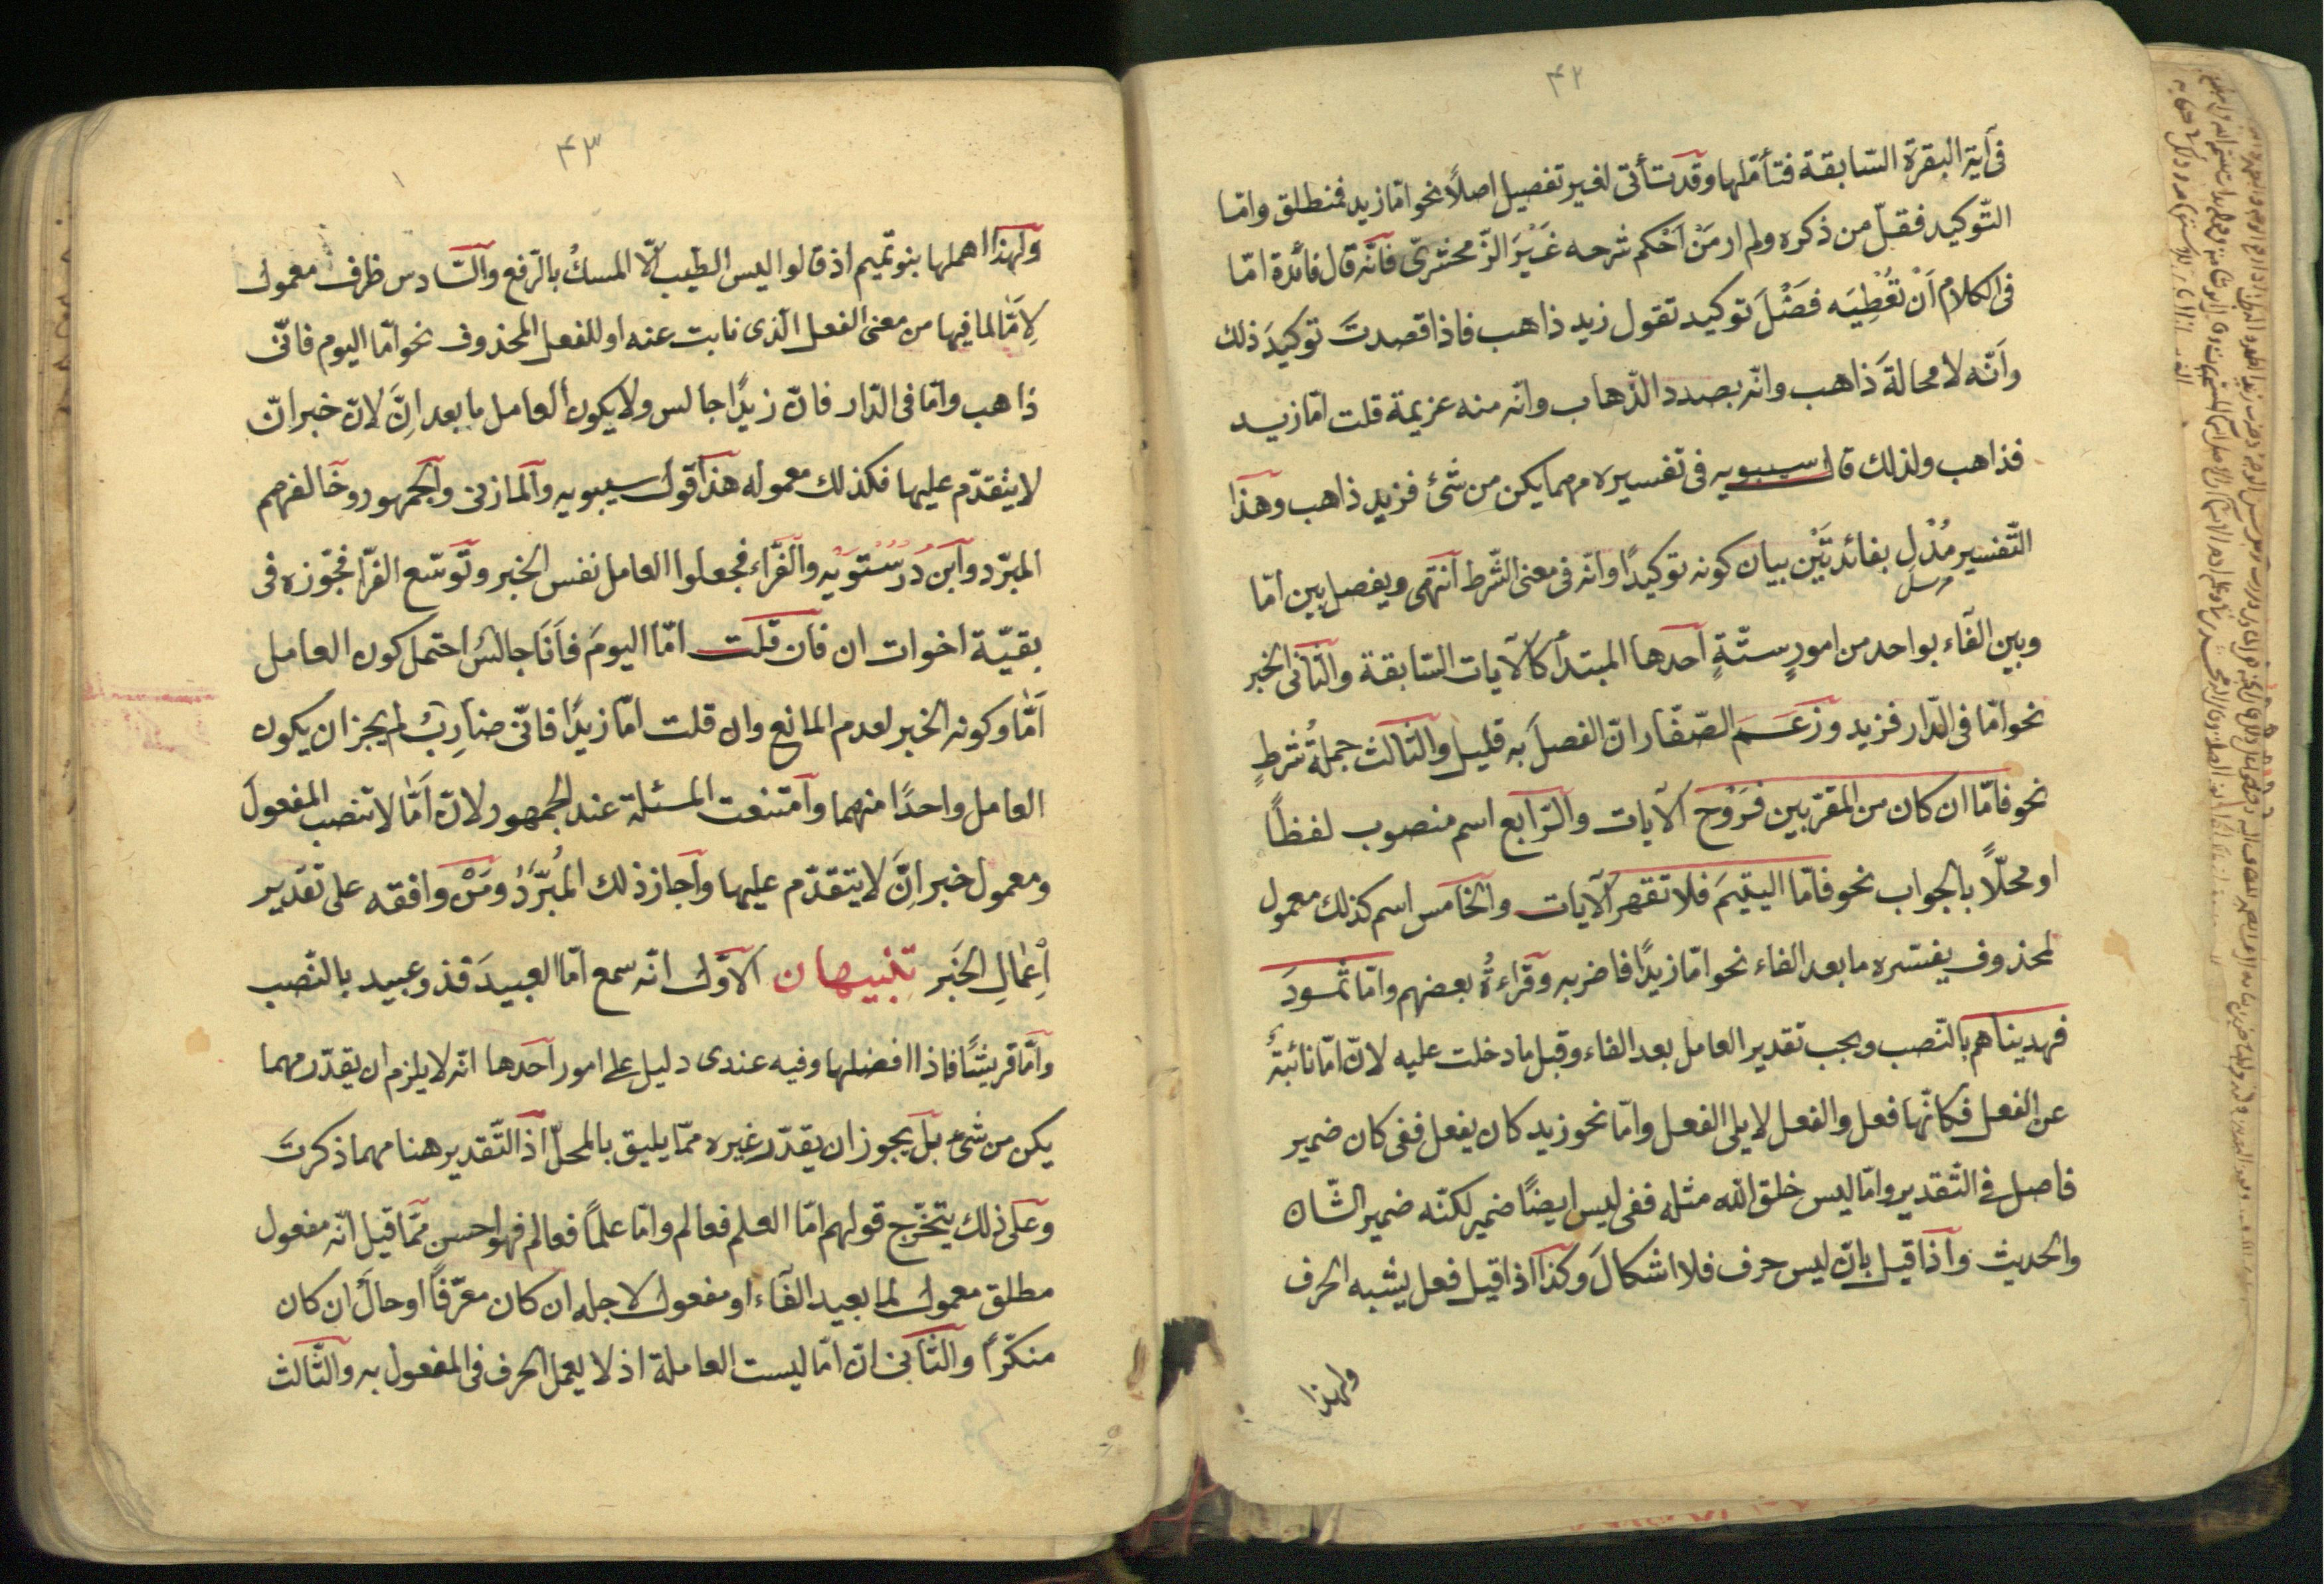 ۴۲
فى آية البقرة السّابقة فتأمّلها وقد تأتى لغير تفصيل اصلًا نحو امّا زيد فمنطلق وامّا
التّوكيد فقلّ من ذكره ولم ار مَنْ اَحْكم شرحه غَيْرَ الزّمخشرىّ فانّه قال فائدة امّا
فى الكلام اَنْ تُعْطِيَه فَضْلَ توكيد تقول زيد ذاهب فاذا قصدتَ توكيدَ ذلك
واَنّه لا محالةَ ذاهب وانّه بصدد الذّهاب وانّه منه عزيمة قلت امّا زيد
فذاهب ولذلك قال سيبويه فى تفسيره مهما يكن من شئ فزيد ذاهب وهذا
التّفسير مُدْلٍ بفائدتَيْن بيان كونه توكيدًا وانّه فى معنى الشّرط انتهى ويفصل بين امّا
وبين الفاء بواحد من امورٍ ستّةٍ احدها المبتدأ كالآيات السّابقة والثّانى الخبر
نحو امّا فى الدّار فزيد وزعَمَ الصّفّار انّ الفصلَ به قليل والثّالث جملةُ شرطٍ
نحو فامّا ان كان من المقرّبين فرَوْح الآيات والرّابع اسم منصوب لفظًا
او محلّاً بالجواب نحو فامّا اليتيمَ فلا تقهر الآيات والخامس اسم كذلك معمول
لمحذوف يفسّره ما بعد الفاء نحو امّا زيدًا فاضربه وقراءةُ بعضهم وامّا ثمودَ
فهديناهم بالنّصب ويجب تقدير العامل بعد الفاء وقبل ما دخلت عليه لانّ امّا نائبةٌ
عن الفعل فكانّها فعل والفعل لا يلى الفعل وامّا نحو زيد كان يفعل ففى كان ضمير
فاصل فى التّقدير وامّا ليس خلق الله مثله ففى ليس ايضًا ضمير لكنّه ضمير الشّان
والحديث واذا قيل بانّ ليس حرف فلا اشكالَ وكذا اذا قيل فعل يشبه الحرف
ولهذا
۴۳
ولهذا اهملها بنو تميم اذ قالوا ليس الطيب الّا المسكُ بالرّفع والسّادس ظرف معمول
لِاَمّا لما فيها من معنى الفعل الّذى نابت عنه او للفعل المحذوف نحو امّا اليوم فانّى
ذاهب وامّا فى الدّار فانّ زيدًا جالس ولا يكون العامل ما بعد اِنَّ لانّ خبر انّ
لا يتقدّم عليها فكذلك معموله هذا قول سيبويه والمازنى والجمهور وخالفهم
المبرّد وابن دُرُسْتَوَيْه والفرّاء فجعلوا العامل نفس الخبر وتوسّع الفرّاء فجوّزه فى
بقيّة اخوات ان فان قلت امّا اليومَ فاَنَا جالسٌ احتمل كون العامل
اَمّا وكونه الخبر لعدم المانع وان قلت امّا زيدًا فانّى ضارِبٌ لم يجز ان يكون
العامل واحدًا منهما وامتنعت المسئلة عند الجمهور لانّ اَمّا لا تنصب المفعولَ
ومعمول خبر اِنَّ لا يتقدّم عليها واجاز ذلك المُبَرَّدُ ومَنْ وافقه على تقدير
اِعْمالِ الخَبَر تنبيهان الاوّل انّه سمع امّا العبيدَ فذو عبيد بالنّصب
وامّا قريشًا فاذا افضلها وفيه عندى دليل على امور احدها انّه لا يلزم ان يقدّر مهما
يكن من شئ بل يجوز ان يقدّر غيره ممّا يليق بالمحلّ اذ التّقدير هنا مهما ذكرتَ
وعلى ذلك يتخرّج قولهم امّا العلم فعالم وامّا علمًا فعالم فهو احسن ممّا قيل انّه مفعول
مطلق معمول لما بعيد الفاء او مفعول لاجله ان كان معرّفًا او حال ان كان
منكّرًا والثّانى انّ امّا ليست العاملة اذ لا يعمل الحرف فى المفعول به والثّالث